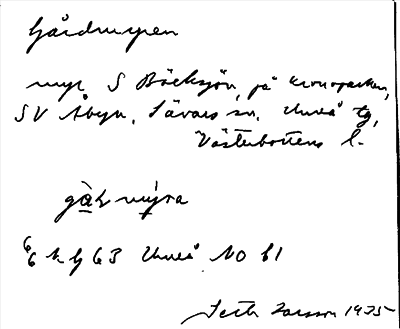 Gårdmyren
myr S Bäcksjön, på kronoparken,
SV Åbyn, Sävars sn. Umeå tg,
Västerbottens l.
gàḷmýra
Ek bl 63 Umeå NO bl
Seth Larsson 1935